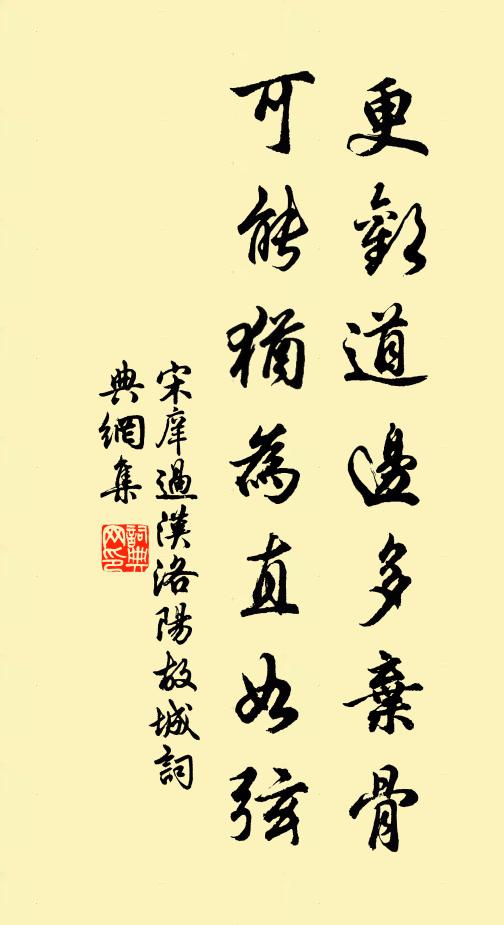 更觀道邊多棄骨
可能猶為直如弦
宋庠過漢洛陽故城詞
典網集
詞典
网印